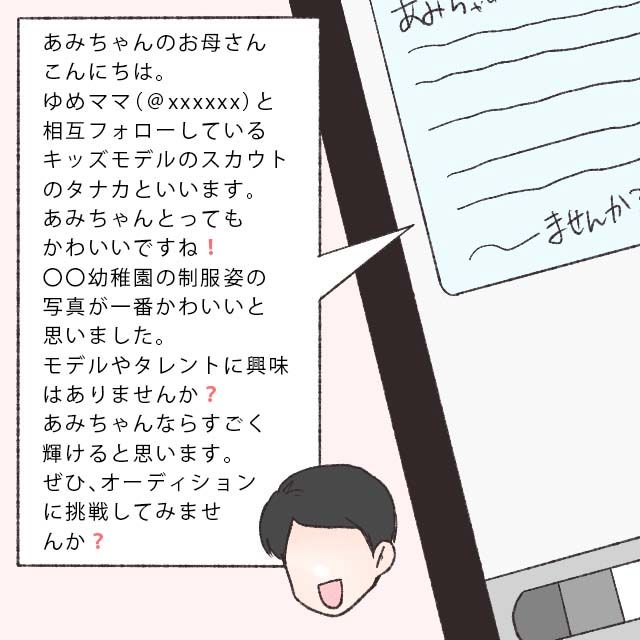 あみちゃんのお母さん
こんにちは。
ゆめママ(@xxxxxx)と
相互フォローしている
キッズモデルのスカウト
のタナカといいます。
あみちゃんとっても
かわいいですね!
〇〇幼稚園の制服姿の
写真が一番かわいいと
思いました。
モデルやタレントに興味
はありませんか?
あみちゃんならすごく
輝けると思います。
ぜひ、オーディション
に挑戦してみませ
んか?
あみちゃん
ませんか?